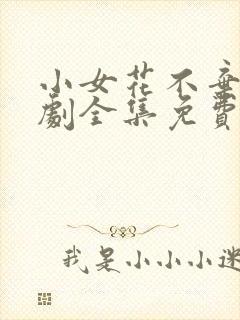 小女花不弃
劇全集免費
我是小小小迷